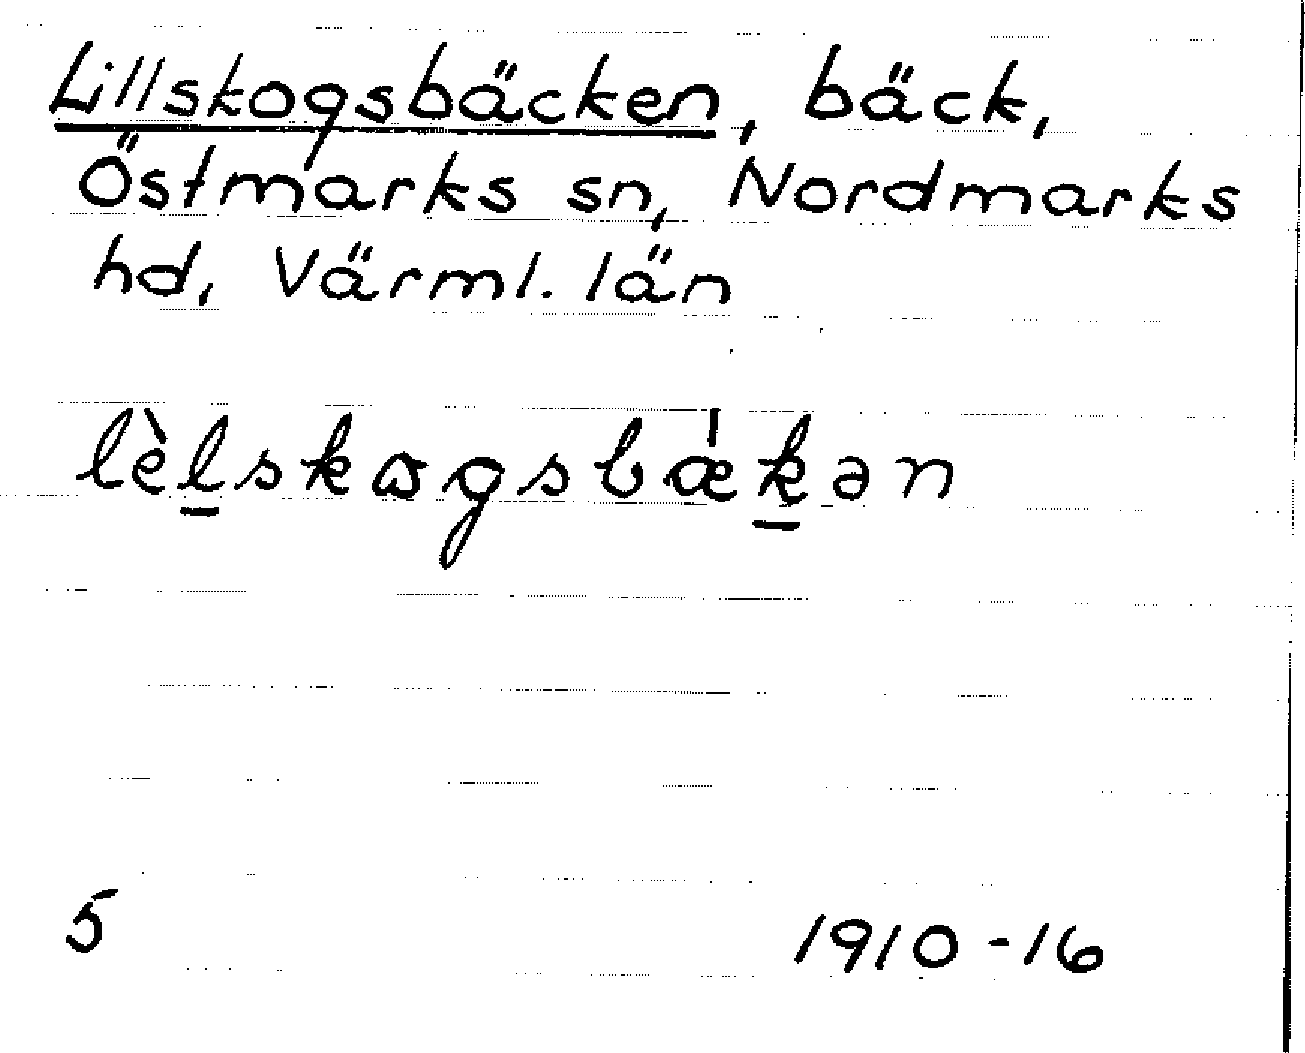 Lillskogsbäcken, bäck,
Östmarks sn, Nordmarks
hd, Värml. län
lèl̲skɷgsbæ̍k̲ən
5 1910-16